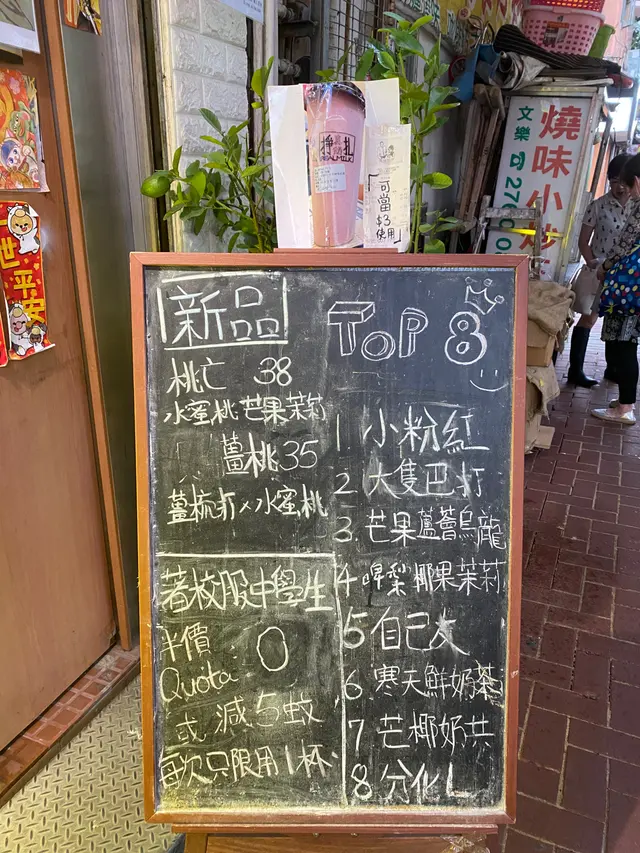 新品
桃亡 38
水蜜桃芒果茉莉
薑桃 35
薑梳打×水蜜桃
著校服中學生
半價
Quota: 0
或減5蚊
每次只限用1杯
TOP 8
1 小粉紅
2 大隻巴打
3. 芒果蘆薈烏龍
4 啤梨椰果茉莉
5 自己友
6 寒天鮮奶茶
7 芒椰奶共
8 分化L
掙扎
可當
$3
使用
燒味小炒
文樂
270
世平安